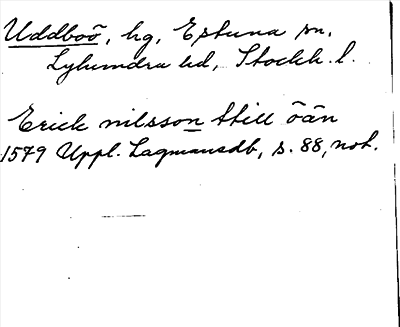 Uddboö, hg, Estuna sn.
Lyhundra hd, Stockh. l.
Erick nilsson till öän
1579 Uppl. Lagmansdb, s. 88, not.